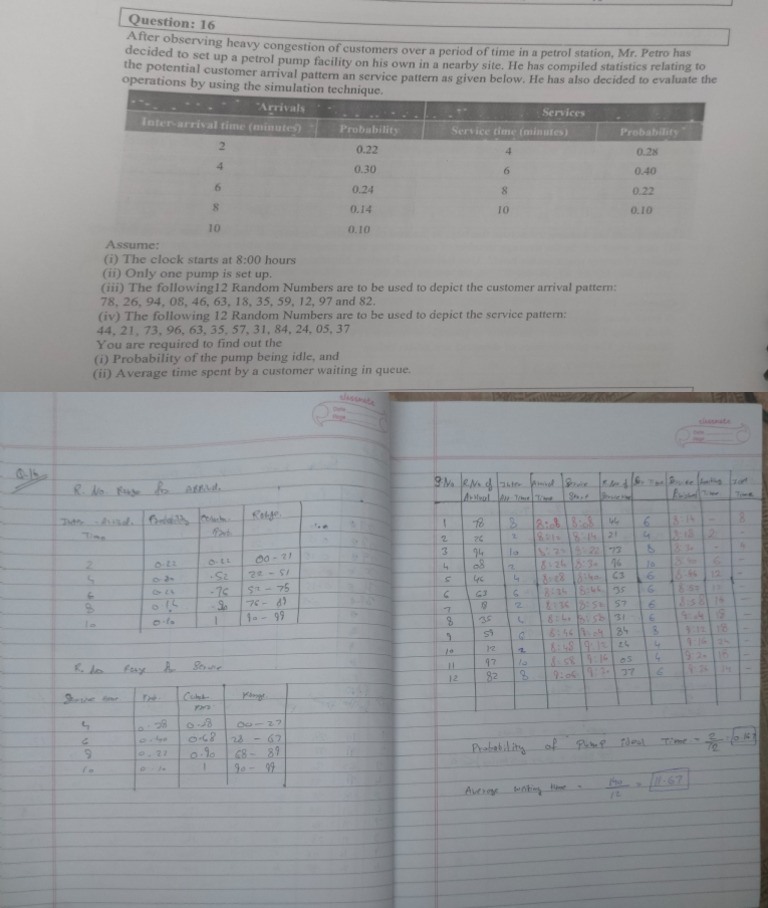 Question: 16
After observing heavy congestion of customers over a period of time in a petrol station, Mr. Petro has
decided to set up a petrol pump facility on his own in a nearby site. He has compiled statistics relating to
the potential customer arrival pattern an service pattern as given below. He has also decided to evaluate the
operations by using the simulation technique.
Arrivals Services
Inter-arrival time (minutes) Probability Service time (minutes) Probability
2 0.22 4 0.28
4 0.30 6 0.40
6 0.24 8 0.22
8 0.14 10 0.10
10 0.10
Assume:
(i) The clock starts at 8:00 hours
(ii) Only one pump is set up.
(iii) The following12 Random Numbers are to be used to depict the customer arrival pattern:
78, 26, 94, 08, 46, 63, 18, 35, 59, 12, 97 and 82.
(iv) The following 12 Random Numbers are to be used to depict the service pattern:
44, 21, 73, 96, 63, 35, 57, 31, 84, 24, 05, 37
You are required to find out the
(i) Probability of the pump being idle, and
(ii) Average time spent by a customer waiting in queue.
classmate
Date
Page
Q.16
R. No Range for Arrival.
Time Probability Range
2 0.22 0.22 00 - 21
.52 22 - 51
6 .76 52 - 75
8 0.14 .90 76 - 89
10 0.10 1 90 - 99
R. No Range for Service
Service time Range
4 0.28 0.28 00 - 27
6 0.40 0.68 28 - 67
8 0.22 0.90 68 - 89
10 0.10 1 90 - 99
classmate
Date
Page
S.No R.No. of Inter Arrival Service Service Waiting
Arrival Arr Time Time Time Time
1 78 8 8:08 8:08 44 6 8:14 - 8
2 26 8:14 21 4 8:18 2 -
3 94 10 8:22 8:22 73 8 8:30 -
4 08 2 8:24 8:30 96 10 6 -
5 46 4 8:28 8:40 63 6 8:46 12 -
6 63 6 8:34 8:46 35 6 -
7 2 8:36 8:52 57 6 8:58 -
8 35 8:40 8:58 31 6 9:04 18 -
9 59 6 8:46 9:04 84 8 9:12 18 -
10 12 2 8:48 9:12 24 4 9:16 24 -
11 97 10 8:58 9:16 05 4 9:20 18 -
12 82 8 9:06 9:20 37 6 -
Probability of Pump Time =
Average waiting time = 140/12 = 11.67